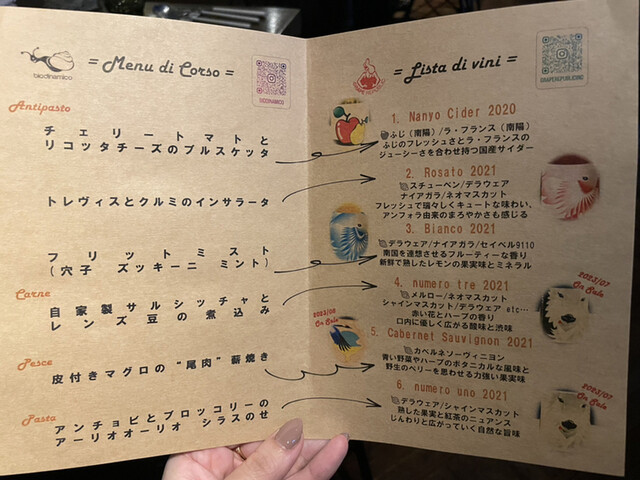 biodinamico
= Menu di Corso =
BIODINAMICO
Antipasto
チェリートマトと
リコッタチーズのブルスケッタ
トレヴィスとクルミのインサラータ
フリットミスト
(穴子 ズッキーニ ミント)
Carne
自家製サルシッチャと
レンズ豆の煮込み
Pesce
皮付きマグロの “尾肉” 薪焼き
Pasta
アンチョビとブロッコリーの
アーリオオーリオ シラスのせ
GRAPE REPUBLIC
= Lista di vini =
GRAPEREPUBLICINC
1. Nanyo Cider 2020
ふじ (南陽) /ラ・フランス (南陽)
ふじのフレッシュさとラ・フランスの
ジューシーさを合わせ持つ国産サイダー
2. Rosato 2021
スチューベン/デラウェア
ナイアガラ/ネオマスカット
フレッシュで瑞々しくキュートな味わい、
アンフォラ由来のまろやかさも感じる
3. Bianco 2021
デラウェア/ナイアガラ/セイベル9110
南国を連想させるフルーティーな香り
新鮮で熟したレモンの果実味とミネラル
4. numero tre 2021
メルロー/ネオマスカット
シャインマスカット/デラウェア etc…
赤い花とハーブの香り
口内に優しく広がる酸味と渋味
2023/07
On Sale
5. Cabernet Sauvignon 2021
カベルネソーヴィニヨン
青い野菜やハーブのボタニカルな風味と
野生のベリーを思わせる力強い果実味
2023/06
On Sale
6. numero uno 2021
デラウェア/シャインマスカット
熟した果実と紅茶のニュアンス
じんわりと広がっていく自然な旨味
2023/07
On Sale